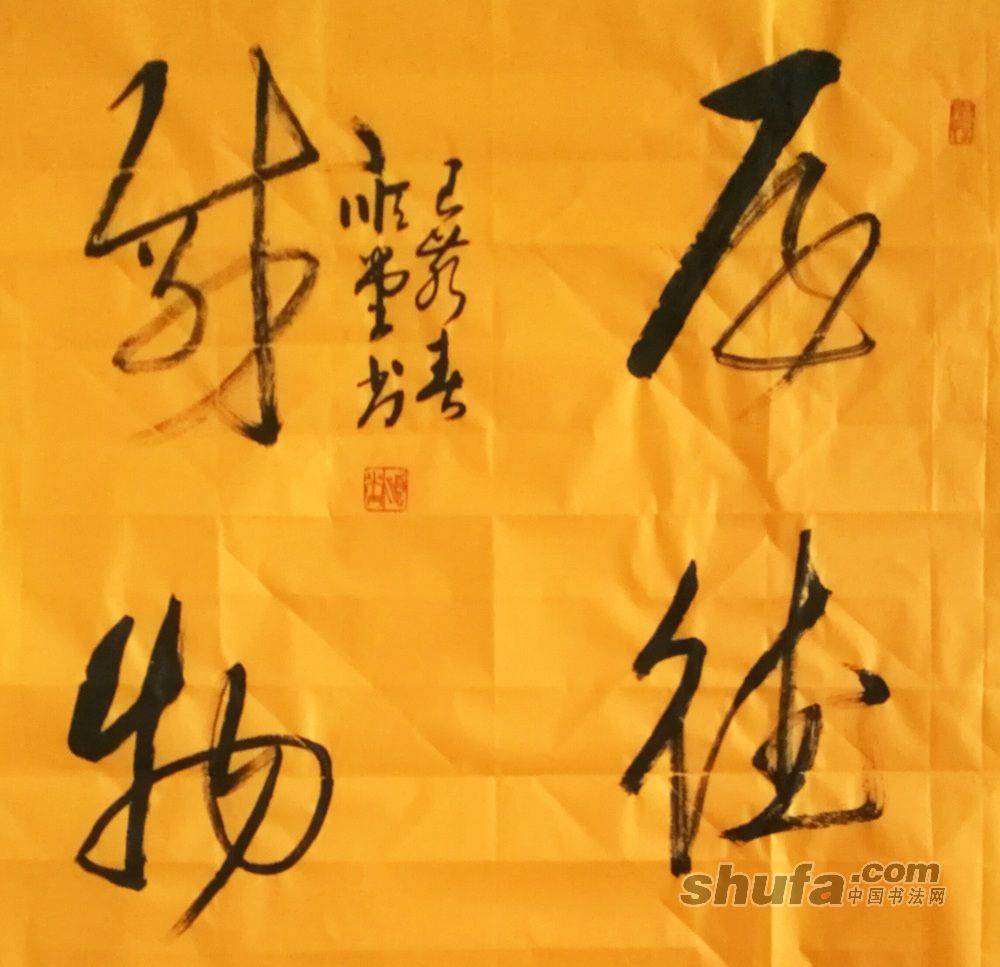 厚德
载物
己亥春
顺堂书
shufa.com
中国书法网